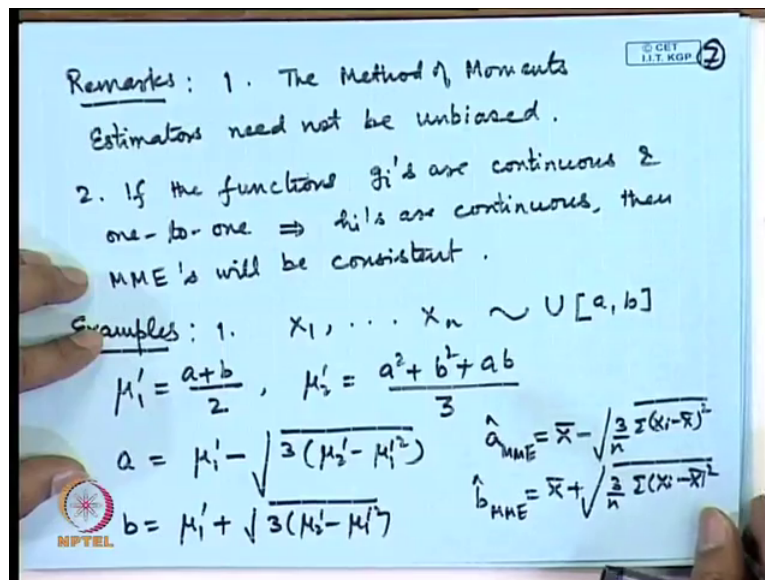 © CET
I.I.T. KGP
2
Remarks : 1. The Method of Moments
Estimators need not be unbiased.
2. If the functions gi's are continuous &
one-to-one ⇒ hi's are continuous, then
MME's will be consistent.
Examples : 1. X1, ... Xn ~ U[a, b]
μ1' = (a+b)/2 , μ2' = (a²+b²+ab)/3
a = μ1' - √(3(μ2' - μ1'²))
b = μ1' + √(3(μ2' - μ1'²))
â_MME = x̄ - √(3/n Σ(xi - x̄)²)
b̂_MME = x̄ + √(3/n Σ(xi - x̄)²)
NPTEL